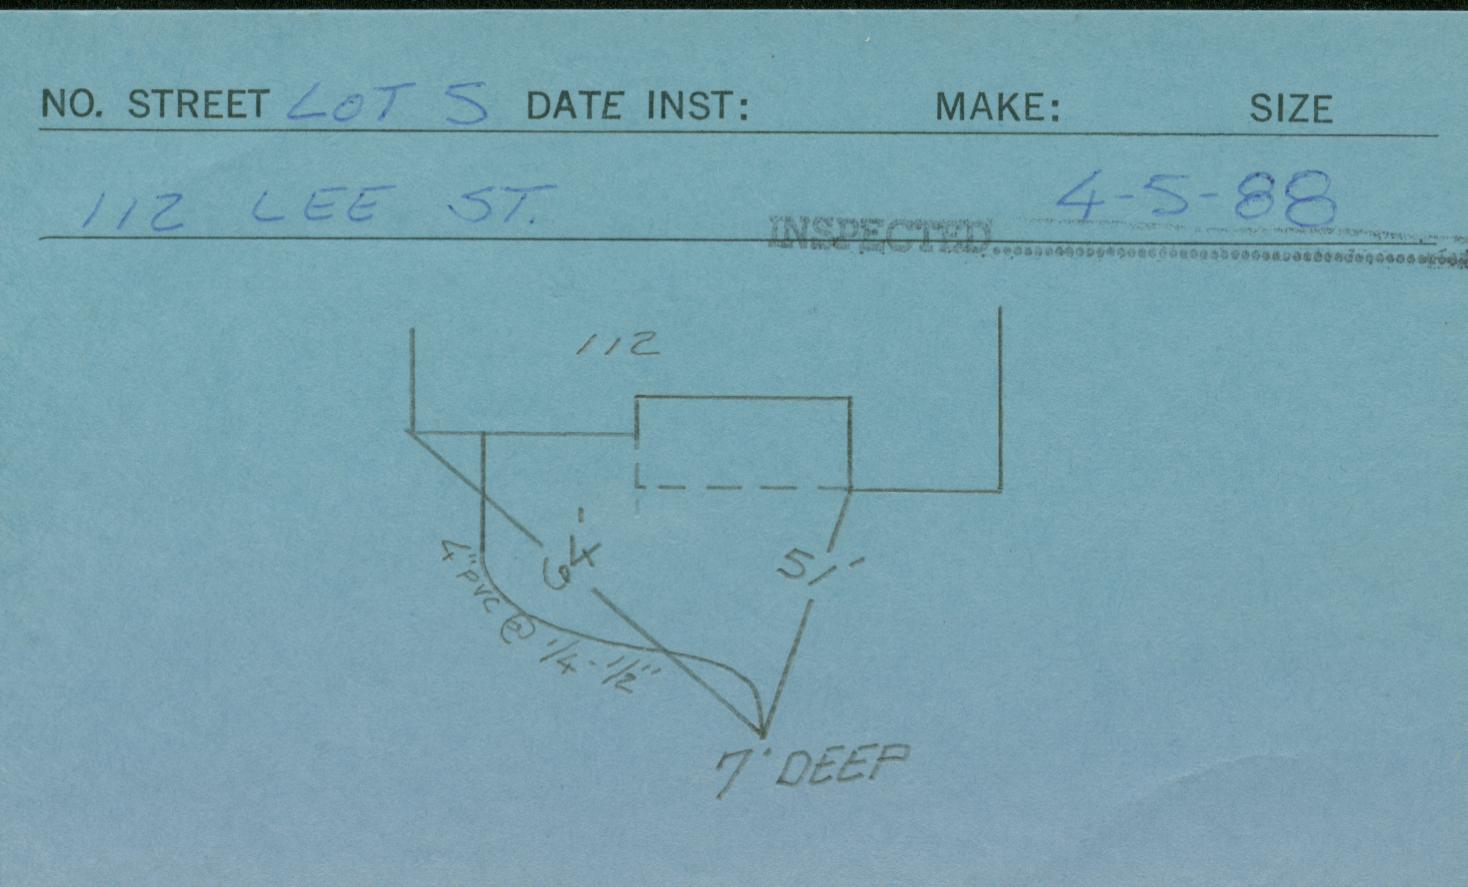 NO. STREET LOT 5 DATE INST: MAKE: SIZE
112 LEE ST. 4-5-88
INSPECTED
112
51'
4" PVC @ 1/4-1/2"
7' DEEP